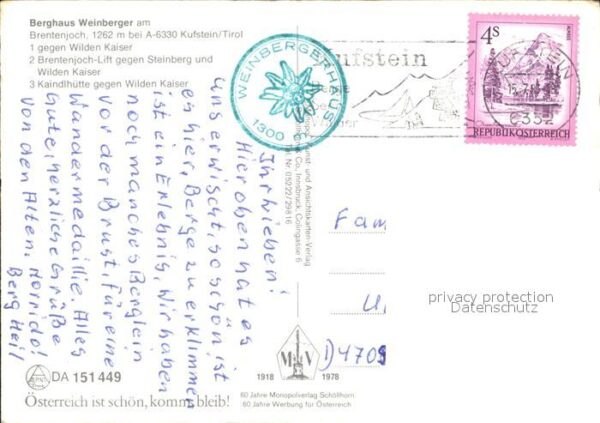 Berghaus Weinberger am
Brentenjoch, 1262 m bei A-6330 Kufstein/Tirol
1 gegen Wilden Kaiser
2 Brentenjoch-Lift gegen Steinberg und
Wilden Kaiser
3 Kaindlhütte gegen Wilden Kaiser
WEINBERGERHAUS
1300
Kufstein
4S
REPUBLIK ÖSTERREICH
KUFSTEIN
6332
Ihr Lieben!
Hier oben hat es
uns erwischt, so schön ist
es hier, Berge zu erklimmen
ist ein Erlebnis. Wir haben
noch manches Berglein
vor der Brust, für eine
Wandermedaille. Alles
Gute, herzliche Grüße
von den Alten. Horrido!
Berg Heil
Kunst- und Ansichtskarten-Verlag
Co., Innsbruck, Colingasse 6
Tel. Nr. 05222/29816
Fam
U
D 4709
privacy protection
Datenschutz
DA 151 449
Österreich ist schön, komm, bleib!
1918
1978
60 Jahre Monopolverlag Schöllhorn
60 Jahre Werbung für Österreich